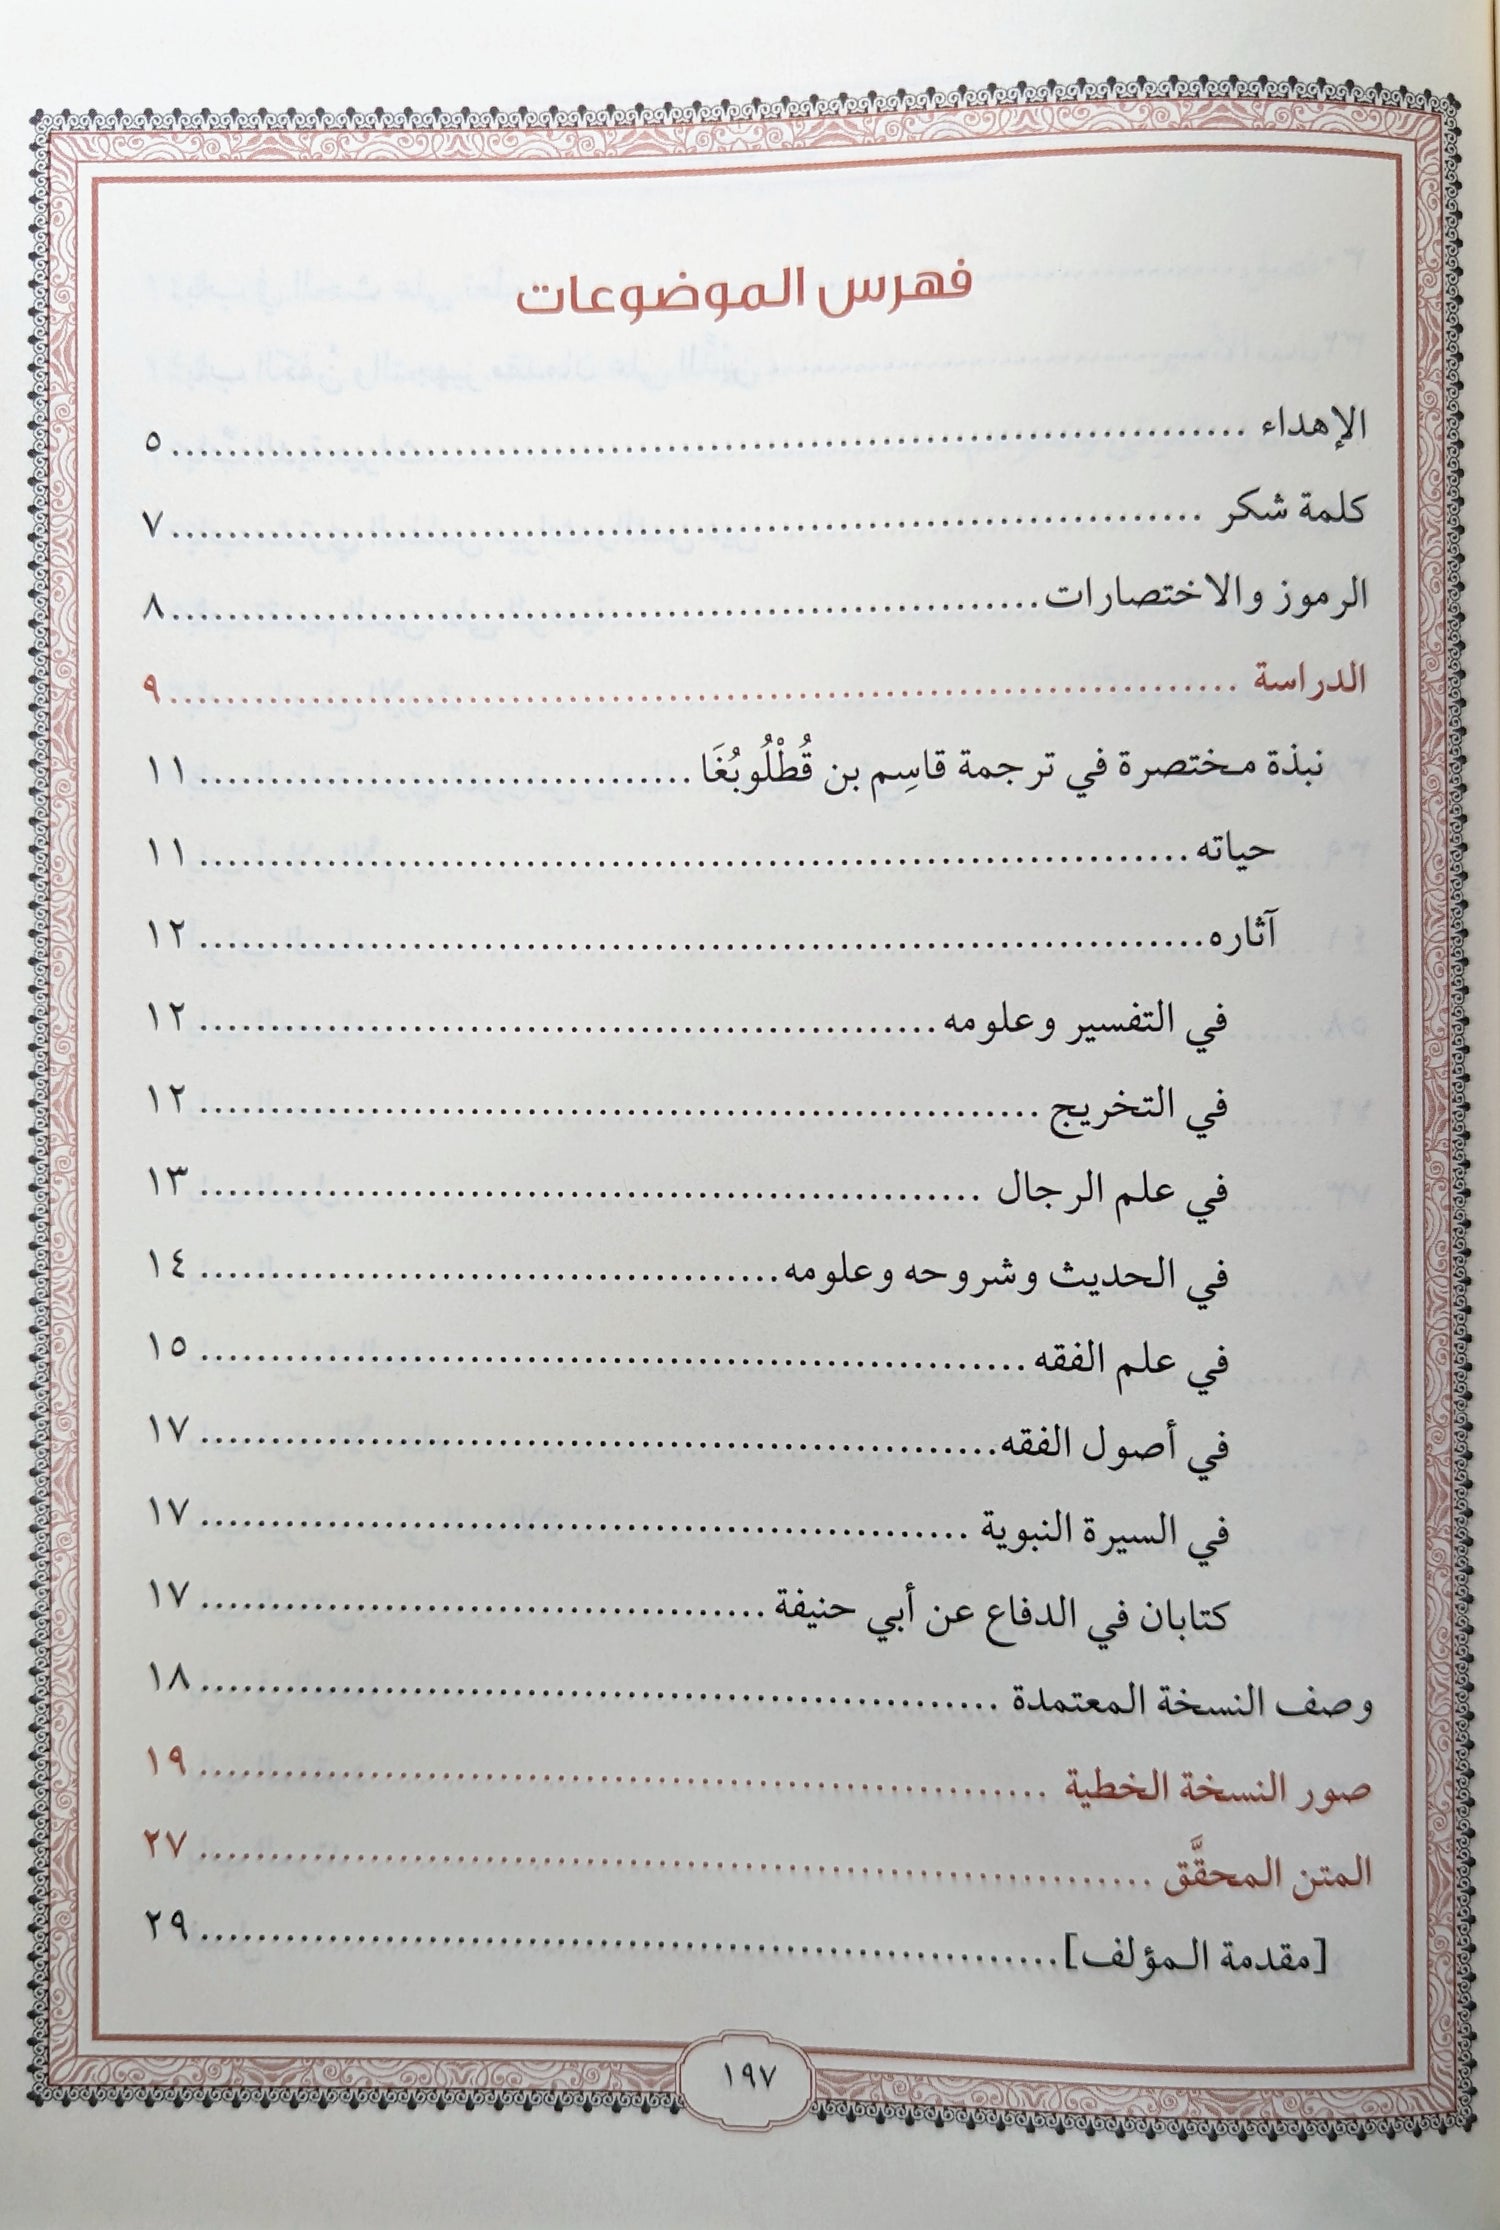 فهرس الموضوعات
الإهداء ........ ٥
كلمة شكر ........ ٧
الرموز والاختصارات ........ ٨
الدراسة ........ ٩
نبذة مختصرة في ترجمة قاسِم بن قُطْلُوبُغَا ........ ١١
حياته ........ ١١
آثاره ........ ١٢
في التفسير وعلومه ........ ١٢
في التخريج ........ ١٢
في علم الرجال ........ ١٣
في الحديث وشروحه وعلومه ........ ١٤
في علم الفقه ........ ١٥
في أصول الفقه ........ ١٧
في السيرة النبوية ........ ١٧
كتابان في الدفاع عن أبي حنيفة ........ ١٧
وصف النسخة المعتمدة ........ ١٨
صور النسخة الخطية ........ ١٩
المتن المحقَّق ........ ٢٧
[مقدمة المؤلف] ........ ٢٩
١٩٧